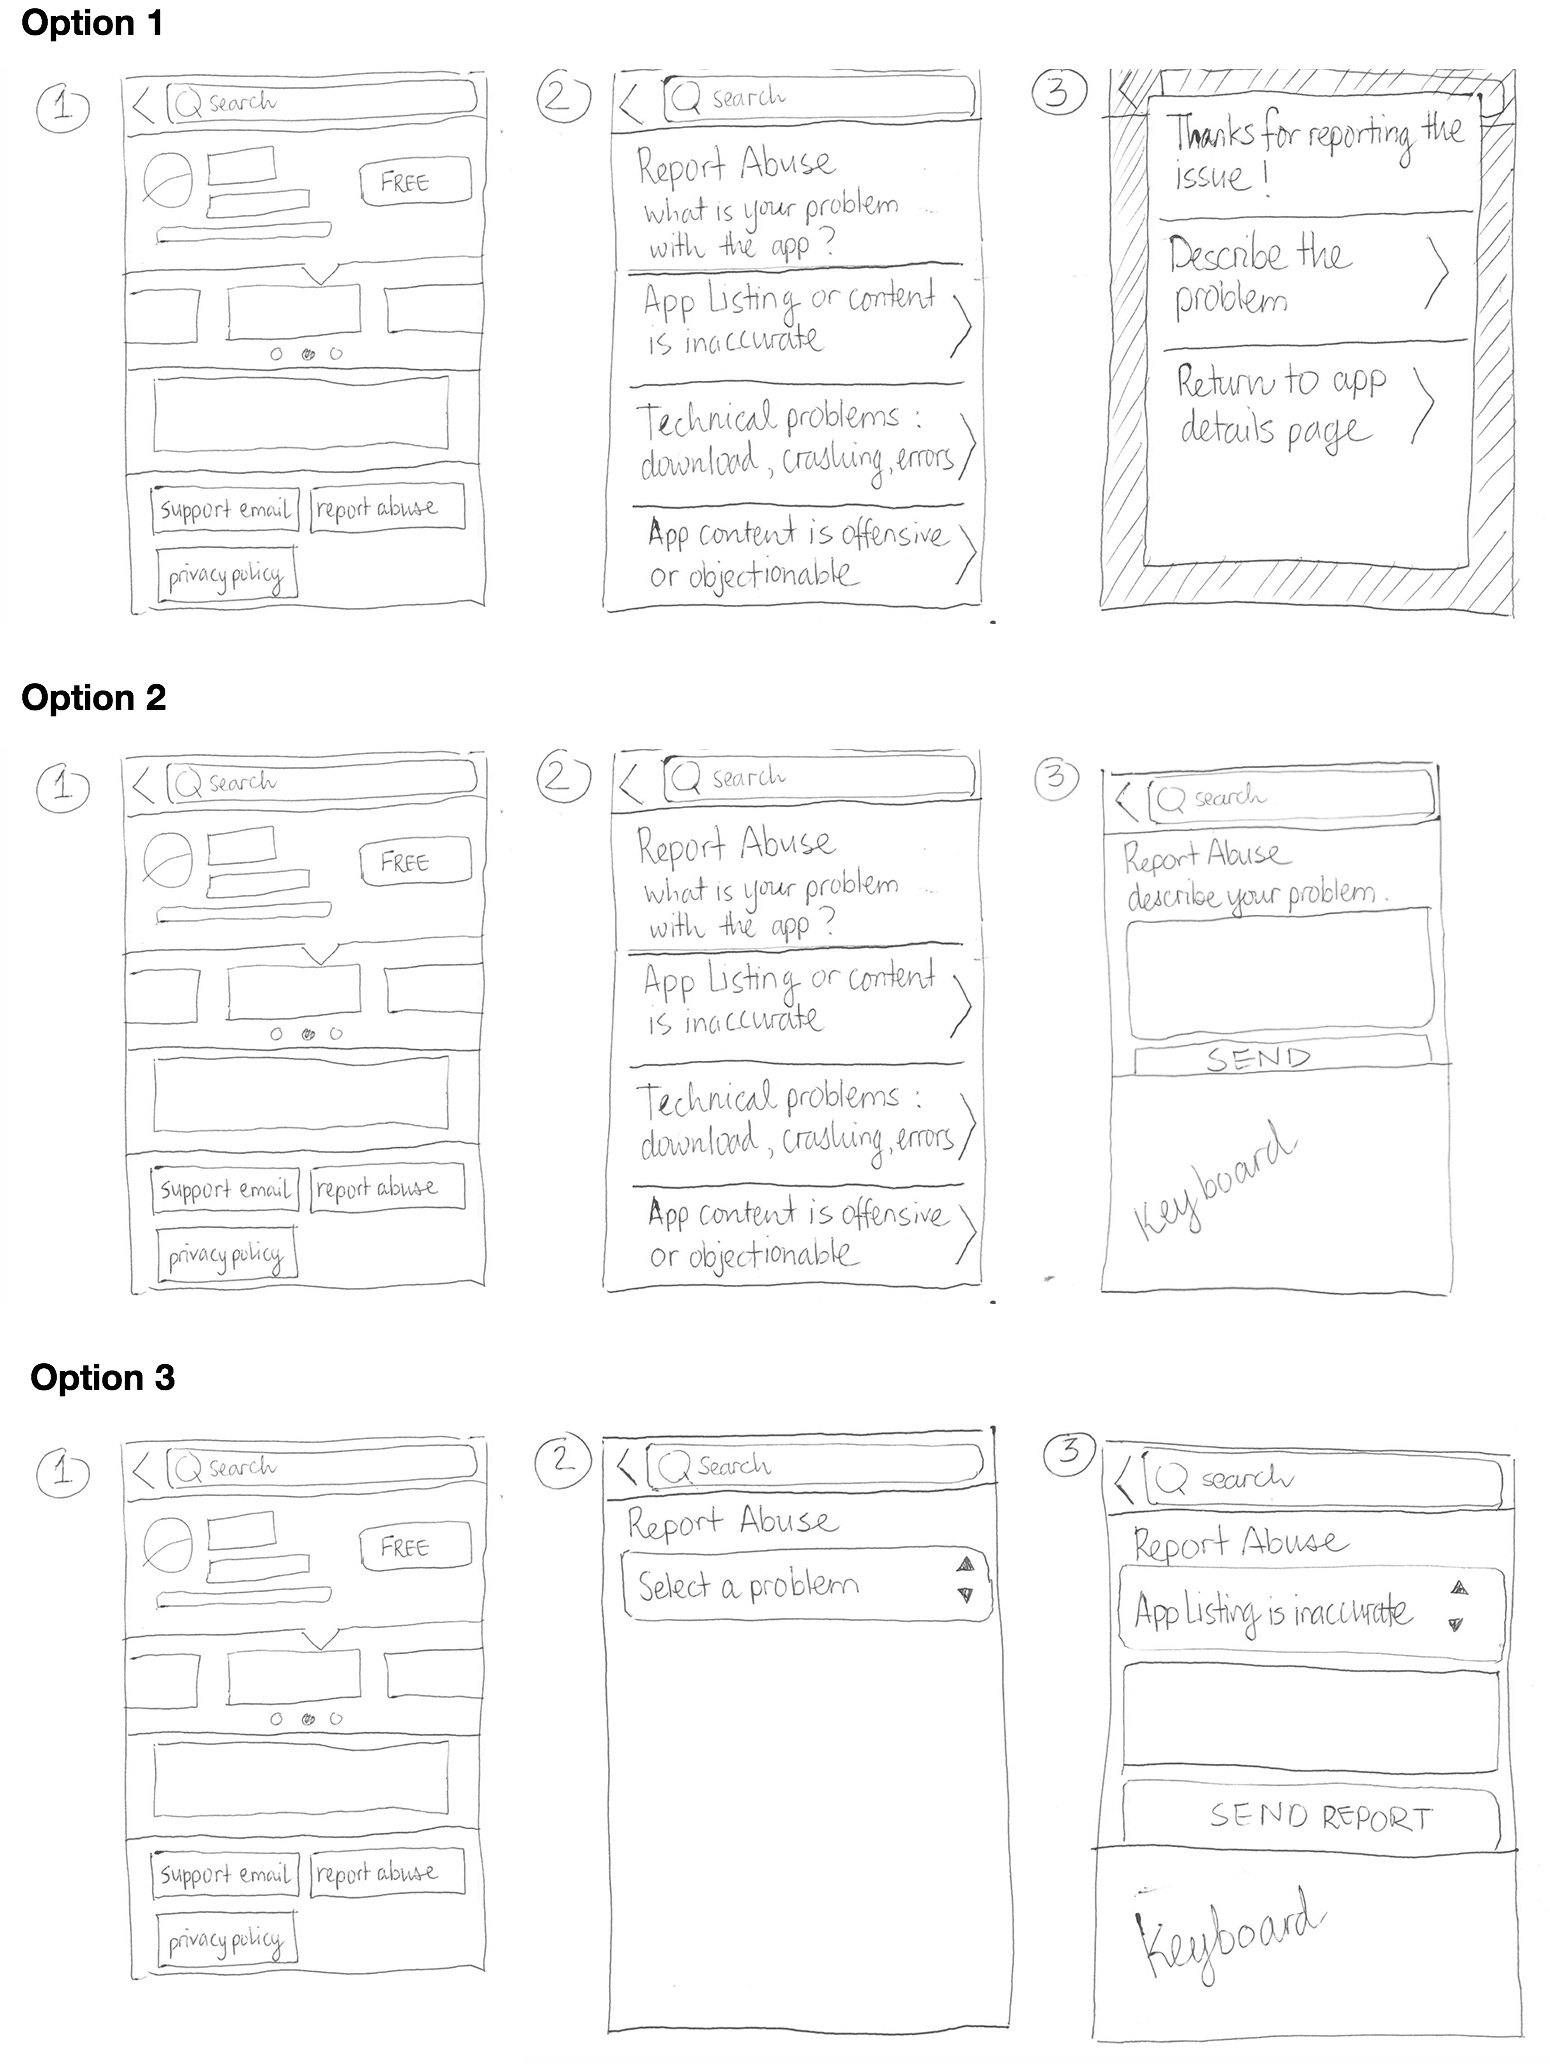 Option 1
1
search
FREE
support email
report abuse
privacy policy
2
search
Report Abuse
what is your problem
with the app?
App Listing or content
is inaccurate
Technical problems:
download, crashing, errors
App content is offensive
or objectionable
3
Thanks for reporting the
issue!
Describe the
problem
Return to app
details page
Option 2
1
search
FREE
support email
report abuse
privacy policy
2
search
Report Abuse
what is your problem
with the app?
App Listing or content
is inaccurate
Technical problems:
download, crashing, errors
App content is offensive
or objectionable
3
search
Report Abuse
describe your problem.
SEND
Keyboard
Option 3
1
search
FREE
support email
report abuse
privacy policy
2
search
Report Abuse
Select a problem
3
search
Report Abuse
App Listing is inaccurate
SEND REPORT
Keyboard